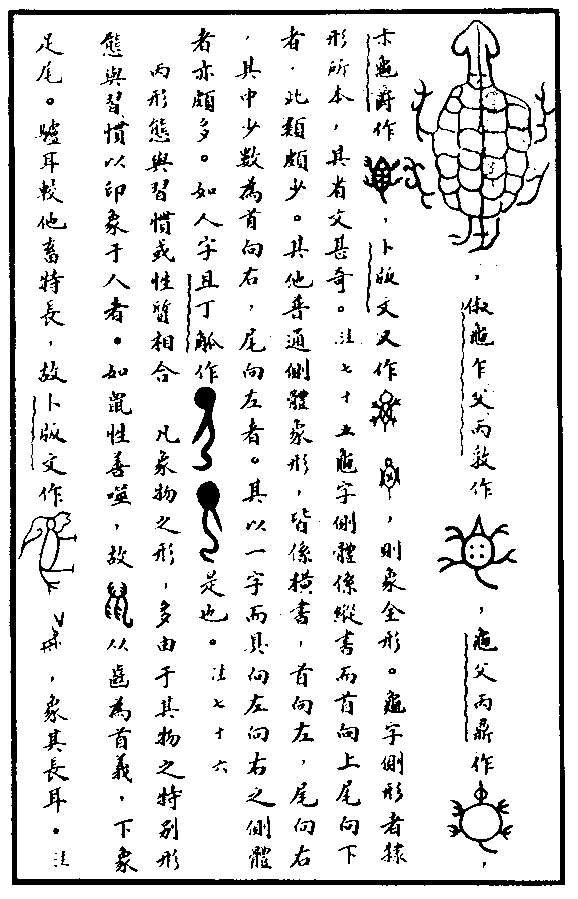 ，俶龜乍父丙敦作，龜父丙鼎作，
卡龜爵作，卜版文又作，則象全形。龜字側形者隸
形所本，具省文甚奇。注七十五龜字側體係縱書而首向上尾向下
者，此類頗少。其他普通側體象形，皆係橫書，首向左，尾向右
，其中少數為首向右，尾向左者。其以一字而具向左向右之側體
者亦頗多。如人字且丁觚作是也。注七十六
丙形態與習慣或性質相合　凡象物之形，多由于其物之特別形
態與習慣以印象于人者。如鼠性善噬，故鼠从齒為首義，下象
足尾。驢耳較他畜特長，故卜版文作，象其長耳。注